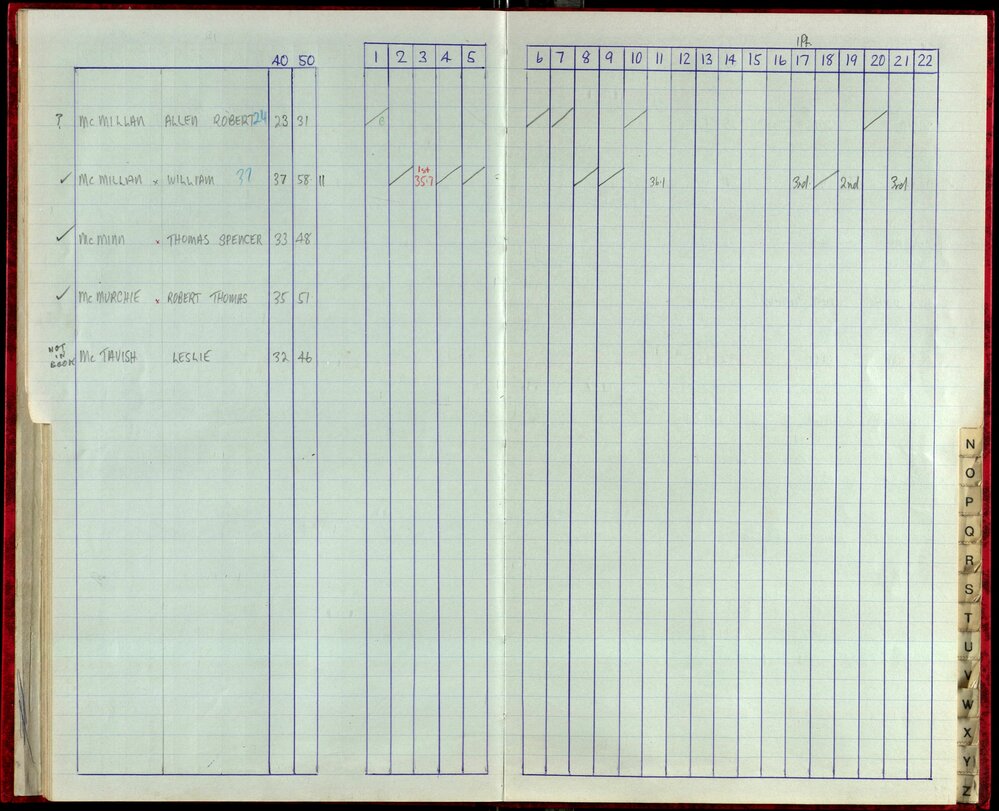 1Pt.
40 50 1 2 3 4 5 6 7 8 9 10 11 12 13 14 15 16 17 18 19 20 21 22
? McMILLAN ALLEN ROBERT 24 23 31
✓ McMILLAN x WILLIAM 37 37 58 11 1st 35.7 36.1 3rd. 2nd 3rd
✓ McMINN x THOMAS SPENCER 33 48
✓ McMURCHIE x ROBERT THOMAS 35 51
NOT IN BOOK McTAVISH LESLIE 32 46
N
O
P
Q
R
S
T
U
V
W
X
Y
Z